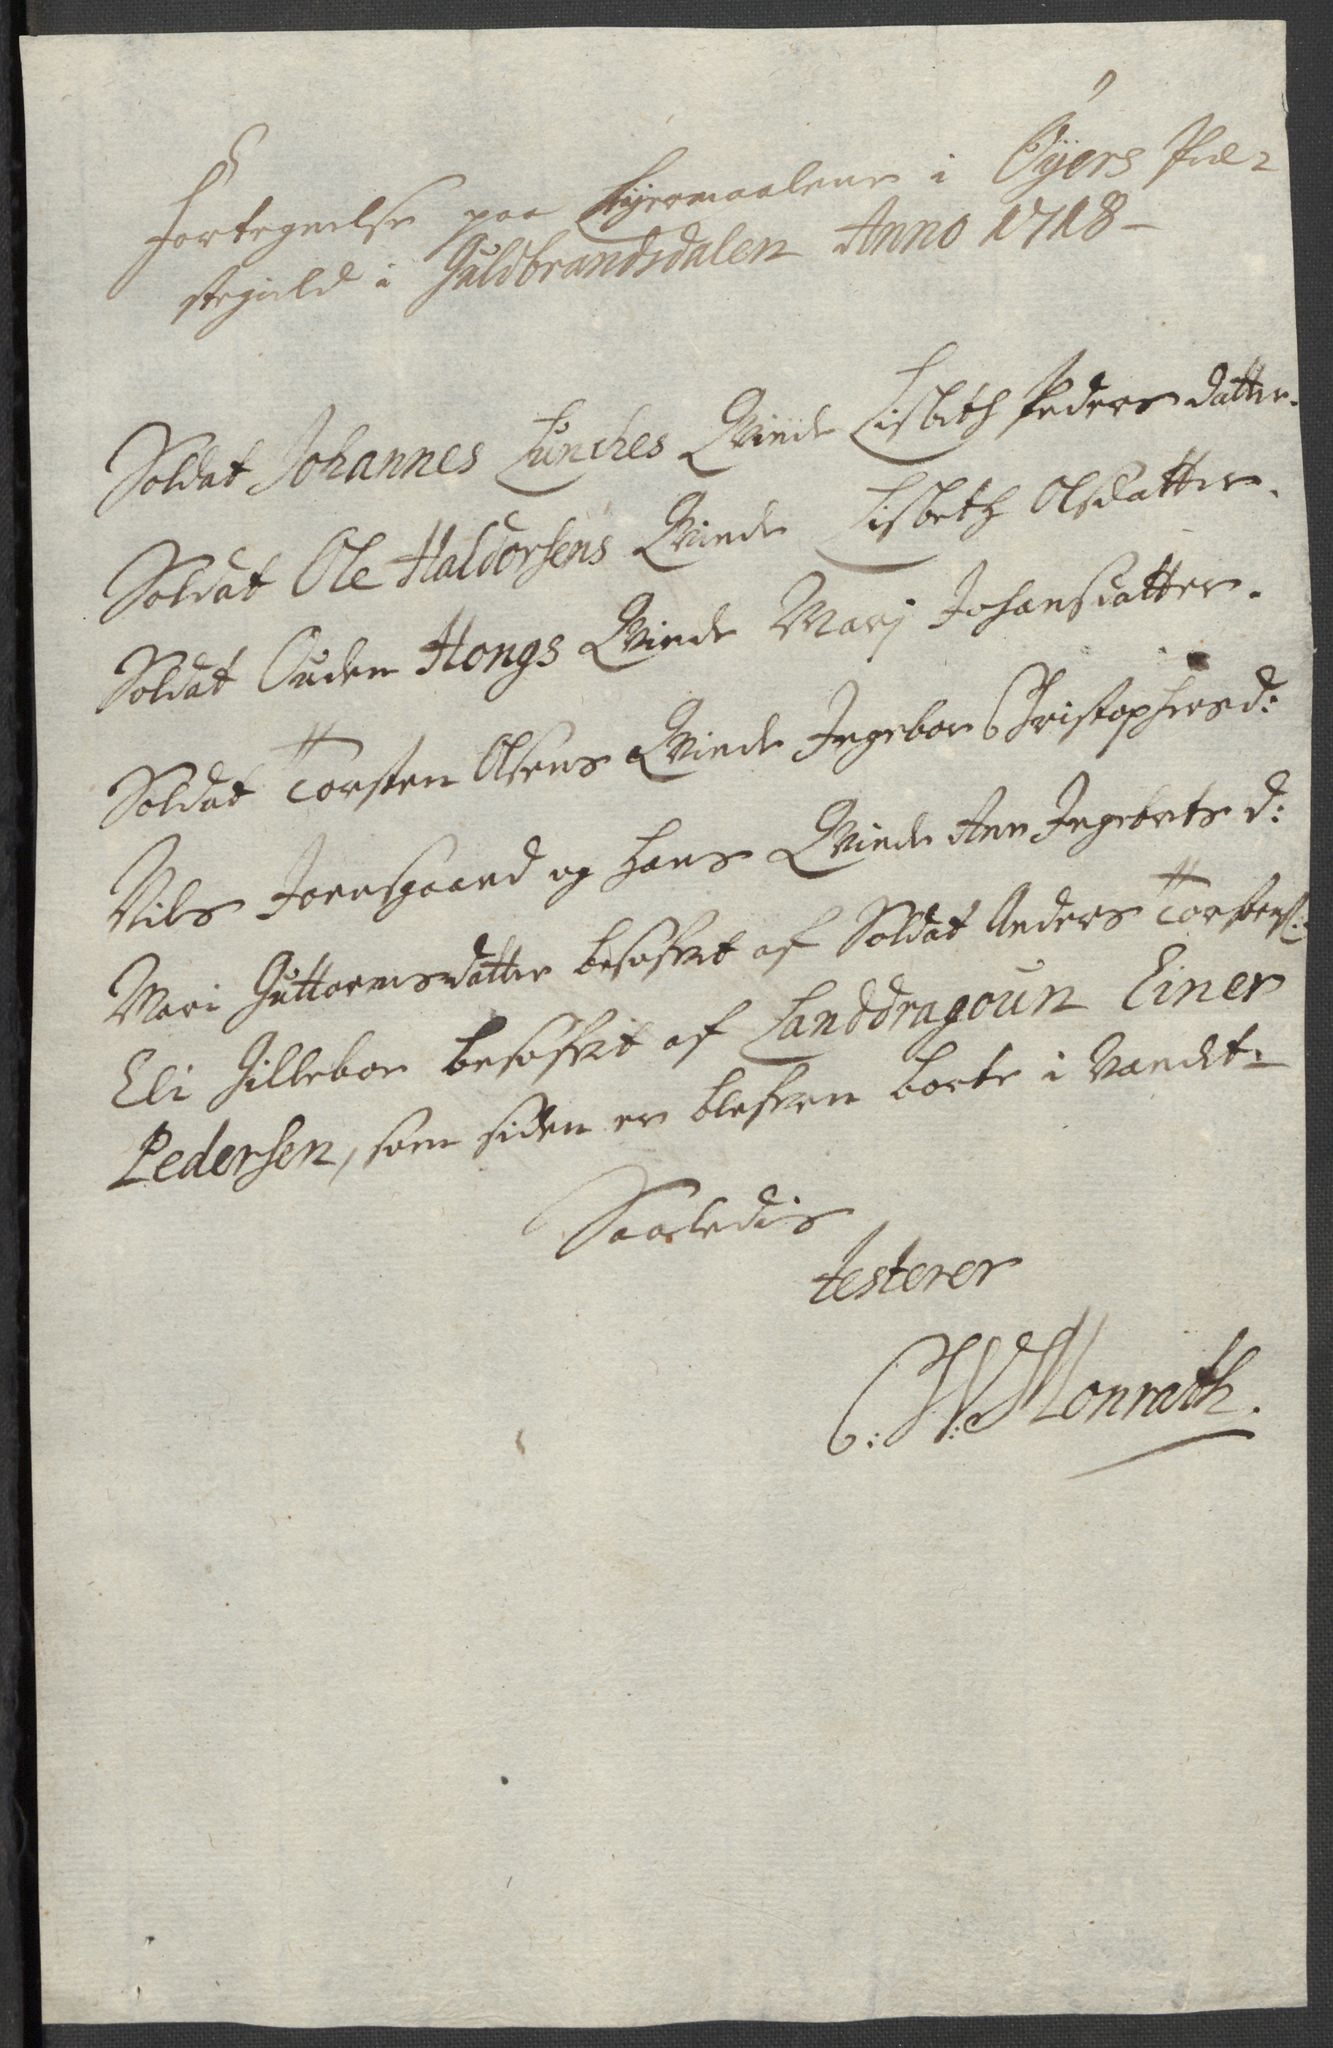 Fortegnelse paa Leyermaalene i Öyers Præ-
stegield i Guldbrandsdalen Anno 1718 -
Soldat Johannes Lunches Qvinde Lisbeth Peders datter.
Soldat Ole Haldorsens Qvinde Lisbeth Olsdatter.
Soldat Ouden Hongs Qvinde Marj Johansdatter.
Soldat Torsten Olsens Qvinde Ingebor Christophersd:
Nils Joensgaard og hans Qvinde Ann Ingebrets d:
Mari Guttormsdatter besofvet af Soldat Anders Torstens:
Eli Gillebor besofvet af Landdragoun Einer
Pedersen, som siden er blefven borte i Vandet-
Saaledis
testerer
C: W: Monrath.